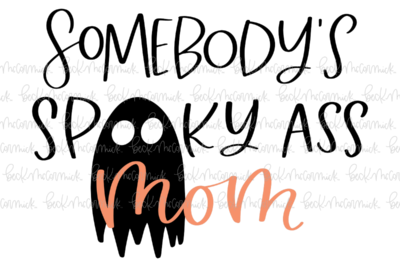 SOMEBODY'S
SPOOKY ASS
mom